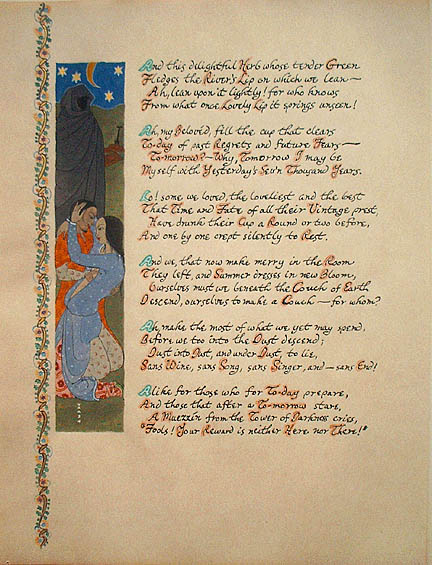 And this delightful Herb whose tender Green
Fledges the River's Lip on which we lean—
Ah, lean upon it lightly! for who knows
From what once Lovely Lip it springs unseen!
Ah, my Beloved, fill the cup that clears
To-day of past Regrets and future Fears—
To-morrow?—Why, Tomorrow I may be
Myself with Yesterday's Sev'n Thousand Years.
Lo! some we loved, the loveliest and the best
That Time and Fate of all their Vintage prest,
Have drunk their Cup a Round or two before,
And one by one crept silently to Rest.
And we, that now make merry in the Room
They left, and Summer dresses in new Bloom,
Ourselves must we beneath the Couch of Earth
Descend, ourselves to make a Couch—for whom?
Ah, make the most of what we yet may spend,
Before we too into the Dust descend;
Dust into Dust, and under Dust, to lie,
Sans Wine, sans Song, sans Singer, and—sans End!
Alike for those who for To-day prepare,
And those that after a To-morrow stare,
A Muezzin from the Tower of Darkness cries,
"Fools! Your Reward is neither Here nor There!"